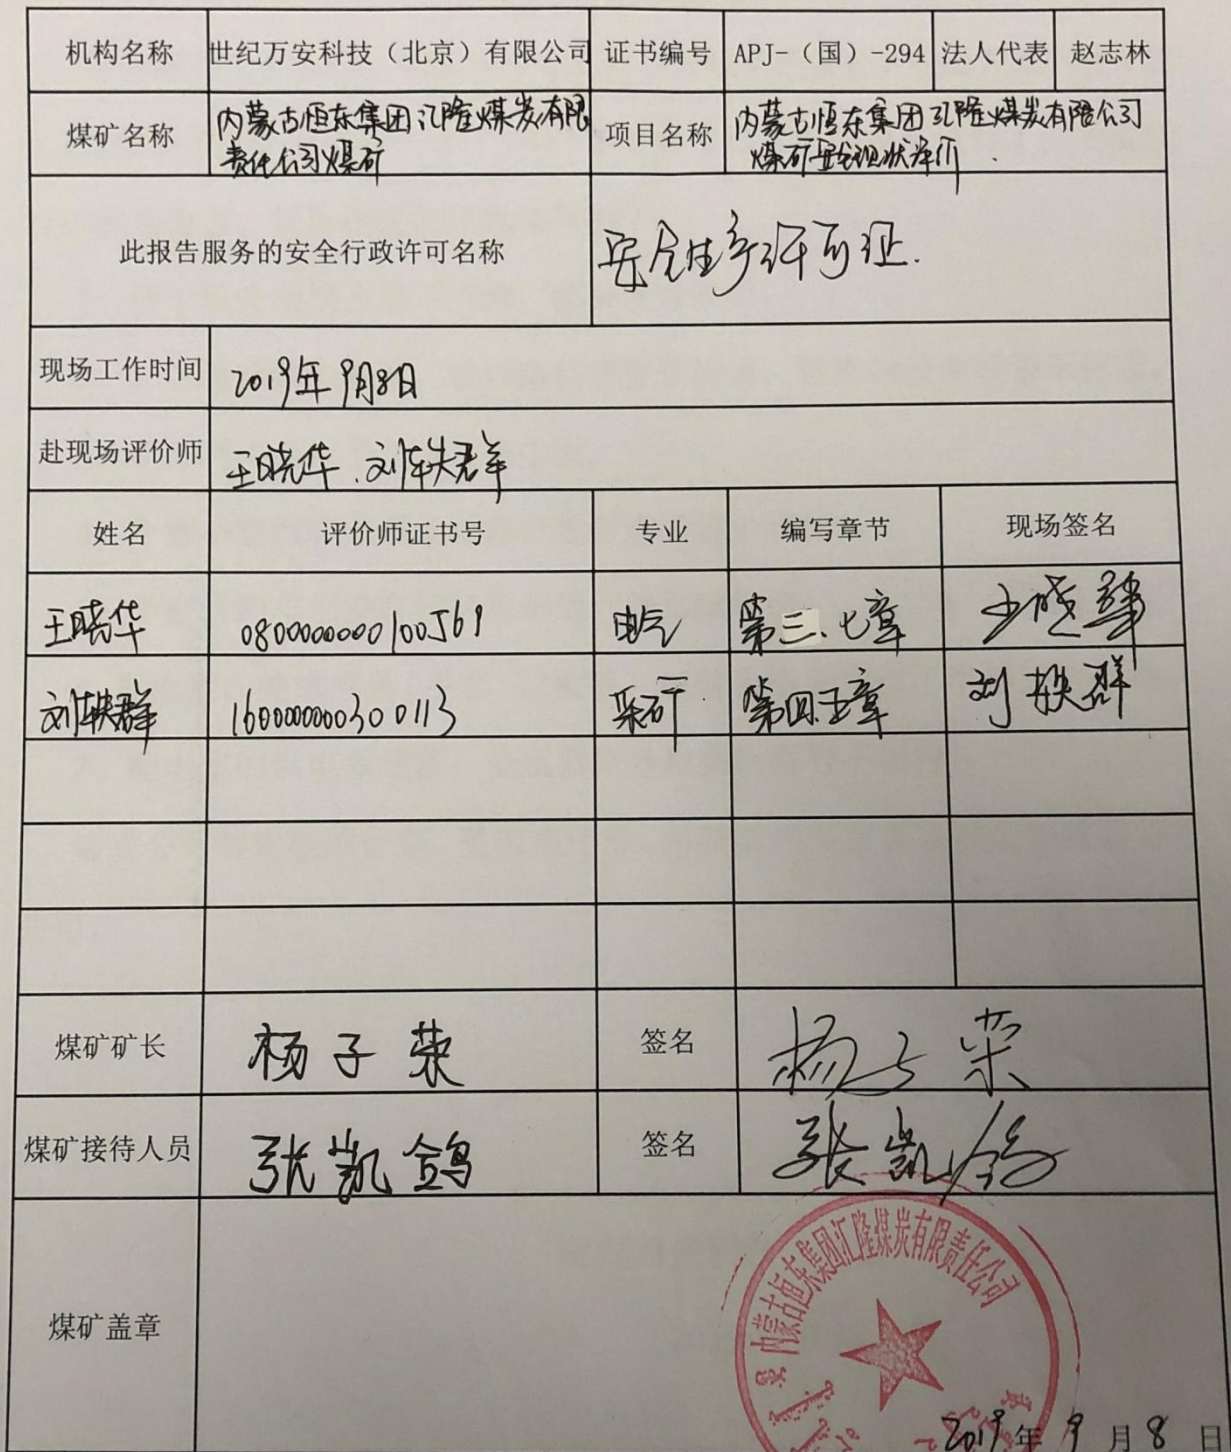 机构名称 世纪万安科技（北京）有限公司 证书编号 APJ-（国）-294 法人代表 赵志林
煤矿名称 内蒙古恒东集团汇隆煤炭有限责任公司煤矿 项目名称 内蒙古恒东集团汇隆煤炭有限公司煤矿安全现状评价
此报告服务的安全行政许可名称 安全生产许可证.
现场工作时间 2019年9月8日
赴现场评价师 王晓华、刘轶群
姓名 评价师证书号 专业 编写章节 现场签名
王晓华 0800000000100569 电气 第三、七章 王晓华
刘轶群 1600000000300113 采矿 第四、五章 刘轶群
煤矿矿长 杨子荣 签名 杨子荣
煤矿接待人员 张凯鸽 签名 张凯鸽
煤矿盖章
内蒙古恒东集团汇隆煤炭有限责任公司
2019年9月8日